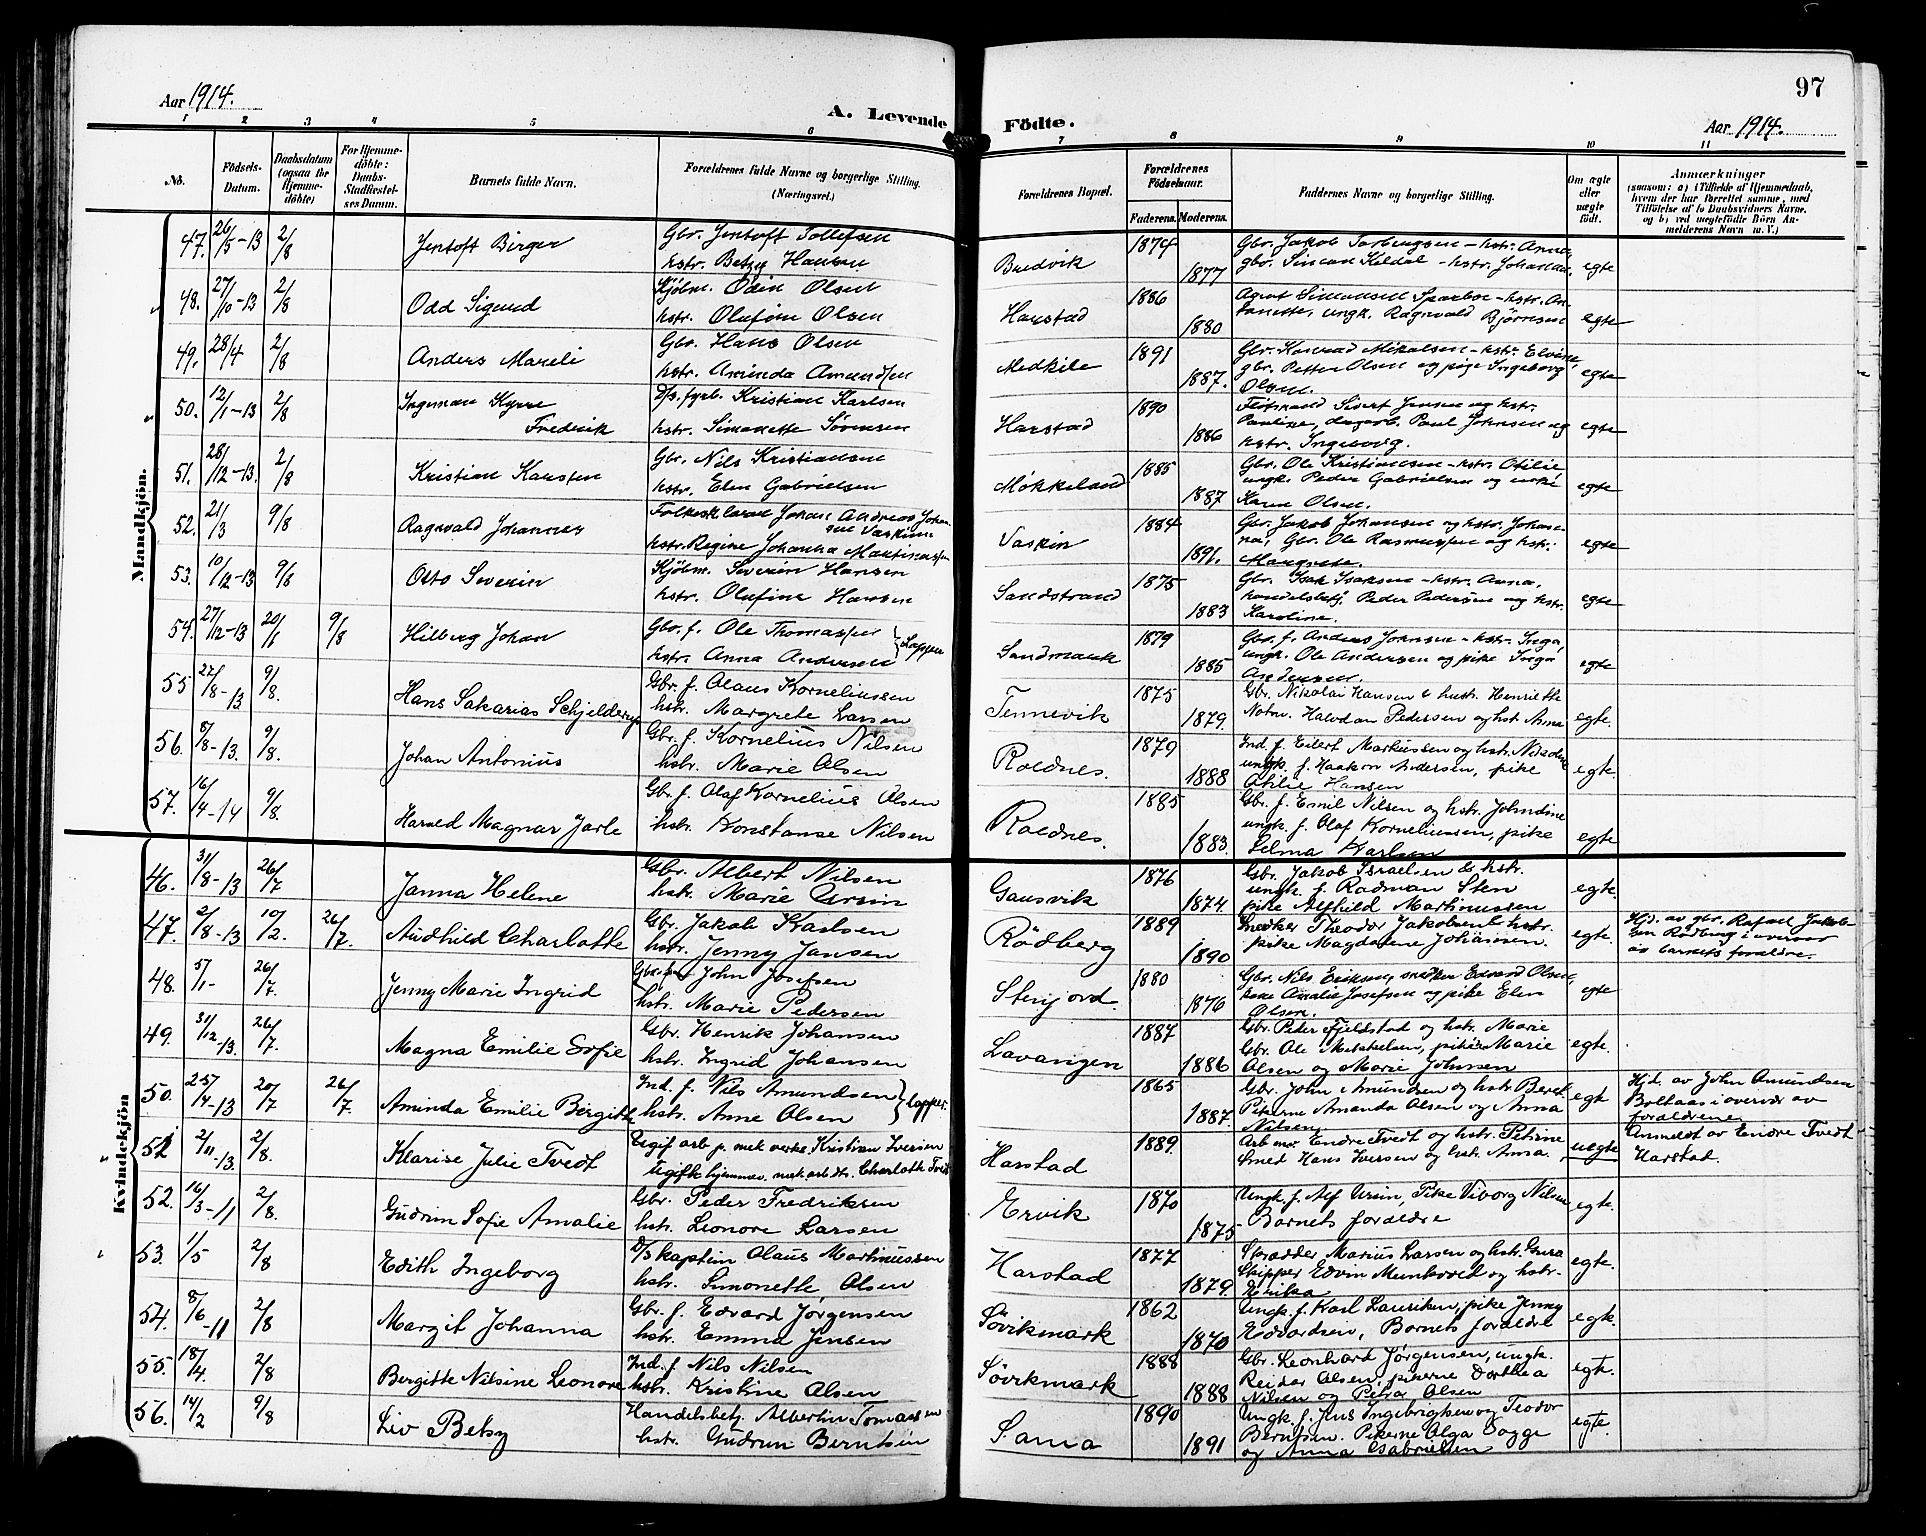 Aar 1914.
A. Levende Födte.
97
Aar 1914.
1 2 3 4 5 6 7 8 9 10 11
No.
Födsels-Datum.
Daabsdatum (ogsaa for Hjemmedöbte)
For Hjemmedöbte: Daabs-Stadfæstelses Datum.
Barnets fulde Navn.
Forældrenes fulde Navne og borgerlige Stilling. (Næringsvei.)
Forældrenes Bopæl.
Forældrenes Födselsaar.
Faderens. Moderens.
Faddernes Navne og borgerlige Stilling.
Om ægte eller uægte födt.
Anmærkninger
(saasom: a) i Tilfælde af Hjemmedaab, hvem der har forrettet samme, med Tilföielse af to Daabsvidners Navne, og b) ved uægtefödte Börn Anmelderens Navn m. V.)
Mandkjön.
47. 26/5-13 2/8 Jentoft Birger Gbr. Jentoft Tollefsen
hstr. Betzy Hansen
Bredvik 1874 1877 Gbr. Jakob Torbergsen - hstr. Anna,
gbr. Simon Keldal - hstr. Johanna. egte
48. 27/10-13 2/8 Odd Sigurd Kjölm. Odin Olsen
hstr. Olufine Olsen
Harstad 1886 1880 Agent Simonsen Sparboe - hstr. Antonette, ungk. Ragnvald Björnsen egte
49. 28/4 2/8 Anders Mareli Gbr. Hans Olsen
hstr. Aminda Amundsen
Medkile 1891 1887. Gbr. Konrad Mikalsen - hstr. Elvine,
gbr. Petter Olsen og pige Ingeborg
Olsen. egte
50. 12/1-13 2/8 Ingeman Kyrre
Fredrik
D/s. fyrb. Kristian Karlsen
hstr. Simonette Sörensen
Harstad 1890 1886 Sivert Jensen og hstr.
Pauline, dagarb. Paul Johnsen og
hstr. Ingeborg. egte
51. 28/12-13. 2/8 Kristian Karsten Gbr. Nils Kristiansen
hstr. Elen Gabrielsen
Mökkeland 1885 1887 Gbr. Ole Kristiansen - hstr. Otilie,
ungk. Peder Gabrielsen og
Olsen. egte
52. 21/3 9/8 Ragnvald Johannes Johan Andreas Johansen Vaskinn
hstr. Regine Johanna Martinussen
Vaskin 1884 1891. Gbr. Jakob Johansen og hstr. Johanna, Gbr. Ole Rasmussen og hstr.
Margrete. egte
53. 10/12-13 9/8 Otto Severin Kjölm. Severin Hansen
hstr. Olufine Hansen
Sandstrand 1875 1883 Gbr. Isak Isaksen - hstr. Anna,
handelsbetj. Peder Pedersen og hstr.
Karoline. egte
54. 27/12-13 20/1 9/8 Hilberg Johan Gbr. f. Ole Thomassen
hstr. Anna Andersen } Lapper
Sandmark 1879 1885 Gbr. f. Anders Johnsen - hstr. Inga,
ungk. Ole Andersen og pike Inga
Andersen. egte
55 22/8-13 9/8. Hans Sakarias Schjelderup Gbr. f. Olaus Korneliussen
hstr. Margrete Larsen
Tennevik 1875 1879. Gbr. Nikolai Hansen & hustr. Henriette
Notm. Halvdan Pedersen og hst. Anna egte.
56. 8/8-13. 9/8. Johan Antonius Gbr. f. Kornelius Nilsen
hstr. Marie Olsen
Roldnes. 1879 1888 Ind. f. Eilert Markussen og hstr. Nikoline
ungk. f. Haakon Andersen, pike
Otilie Hansen egte.
57. 16/4-14 9/8. Harald Magnar Jarle Gbr. f. Olaf Kornelius Olsen
hstr. Konstanse Nilsen
Roldnes. 1885 1883. Gbr. f. Emil Nilsen og hstr. Johndine
ungk. f. Olaf Korneliussen, pike
Selma Karlsen egte
Kvindekjön
46. 31/8-13 26/7 Janna Helene Gbr. Albert Nilsen
hstr. Marie Ursin
Gausvik 1876 1874 Gbr. Jakob Israelsen & hstr.
ungk. f. Rodman Sten
pike Alfhild Martinussen egte.
47. 2/8-13 10/2. 26/7. Audhild Charlotte Gbr. Jakob Karlsen
hstr. Jenny Jansen
Rödberg 1889 1890 Snedker Theodor Jakobsen & hstr.
pike Magdalene Johansen. egte. Hjd. av gbr. Rafael Jakobsen Rödberg i overvær
av barnets foreldre.
48. 5/1- 26/7. Jenny Marie Ingrid John Josefsen
hstr. Marie Pedersen
Stenjord 1880 1876 Gbr. Nils Eriksen, snedker Edvard Olsen,
Amalie Josefsen og pike Elen
Olsen. egte
49. 31/12-13. 26/7. Magna Emilie Sofie Gbr. Henrik Johansen
hstr. Ingrid Johansen
Lavangen 1887 1886 Gbr. Peder Fjeldstad og hstr. Marie
Gbr. Ole Mikkelsen, Marie
Olsen og Marie Johnsen egte.
50. 25/4-13 20/7 26/7. Aminda Emilie Birgitte Ind. f. Nils Amundsen
hstr. Anne Olsen } Lapper.
1865 1887. Gbr. John Amundsen og hstr Beret
Pikerne Amanda Olsen og Anna
Nilsen egte Hjd. av John Amundsen
Boltaas i overvær av
foreldrene
51 2/11-13. 2/8. Klarise Julie Tvedt Ugif arb p. mek verks. Kristian Iversen
Ugifte hjemmev. Charlotte Tvedt
Harstad 1889. Endre Tvedt og hstr. Petrine
Smed Hans Iversen og hstr. Anna. uegte Anmeldt av Endre Tvedt
Harstad.
52. 16/3-11 2/8. Gudrun Sofie Amalie Gbr. Peder Fredriksen
hstr. Leonore Larsen
Ervik 1870 1875 Ungk. f. Alf Ursin, Pike Viborg Nilsen
Barnets foreldre egte.
53. 1/5 2/8 Edith Ingeborg D/s kaptein Olaus Martinussen
hstr. Simonette Olsen
Harstad 1877 1879. Skredder Marius Larsen og hstr. Gura
Skipper Edvin Munkvold og hstr.
Henrika egte.
54. 8/6-11 2/8 Margit Johanna Gbr. f. Edvard Jörgensen
hstr. Emma Jensen
Sövikmark 1862 1870 Ungk. f. Karl Lauriken, pike Jenny
Edvardsen, Barnets foreldre egte.
55. 18/4. 2/8 Bergitte Nilsine Leonore Ind. f. Nils Nilsen
hstr. Kristine Olsen
Sövikmark 1888 1888 Gbr. Leonhard Jörgensen, ungk.
Reidar Olsen, pikerne Dorthea
Nilsen og Petra Olsen egte.
56. 14/2 9/8 Liv Betsy Handelsbetj. Albertin Tomassen
hstr. Gudrun Berntsen
Sama 1890 1891 Ungk. f. Jens Ingebrigtsen og Teodor
Berntsen. Pikerne Olga Dogge
og Anna Gabrielsen egte.